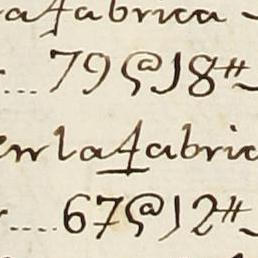 la fabrica
79@18#
en la fabric
67@12#